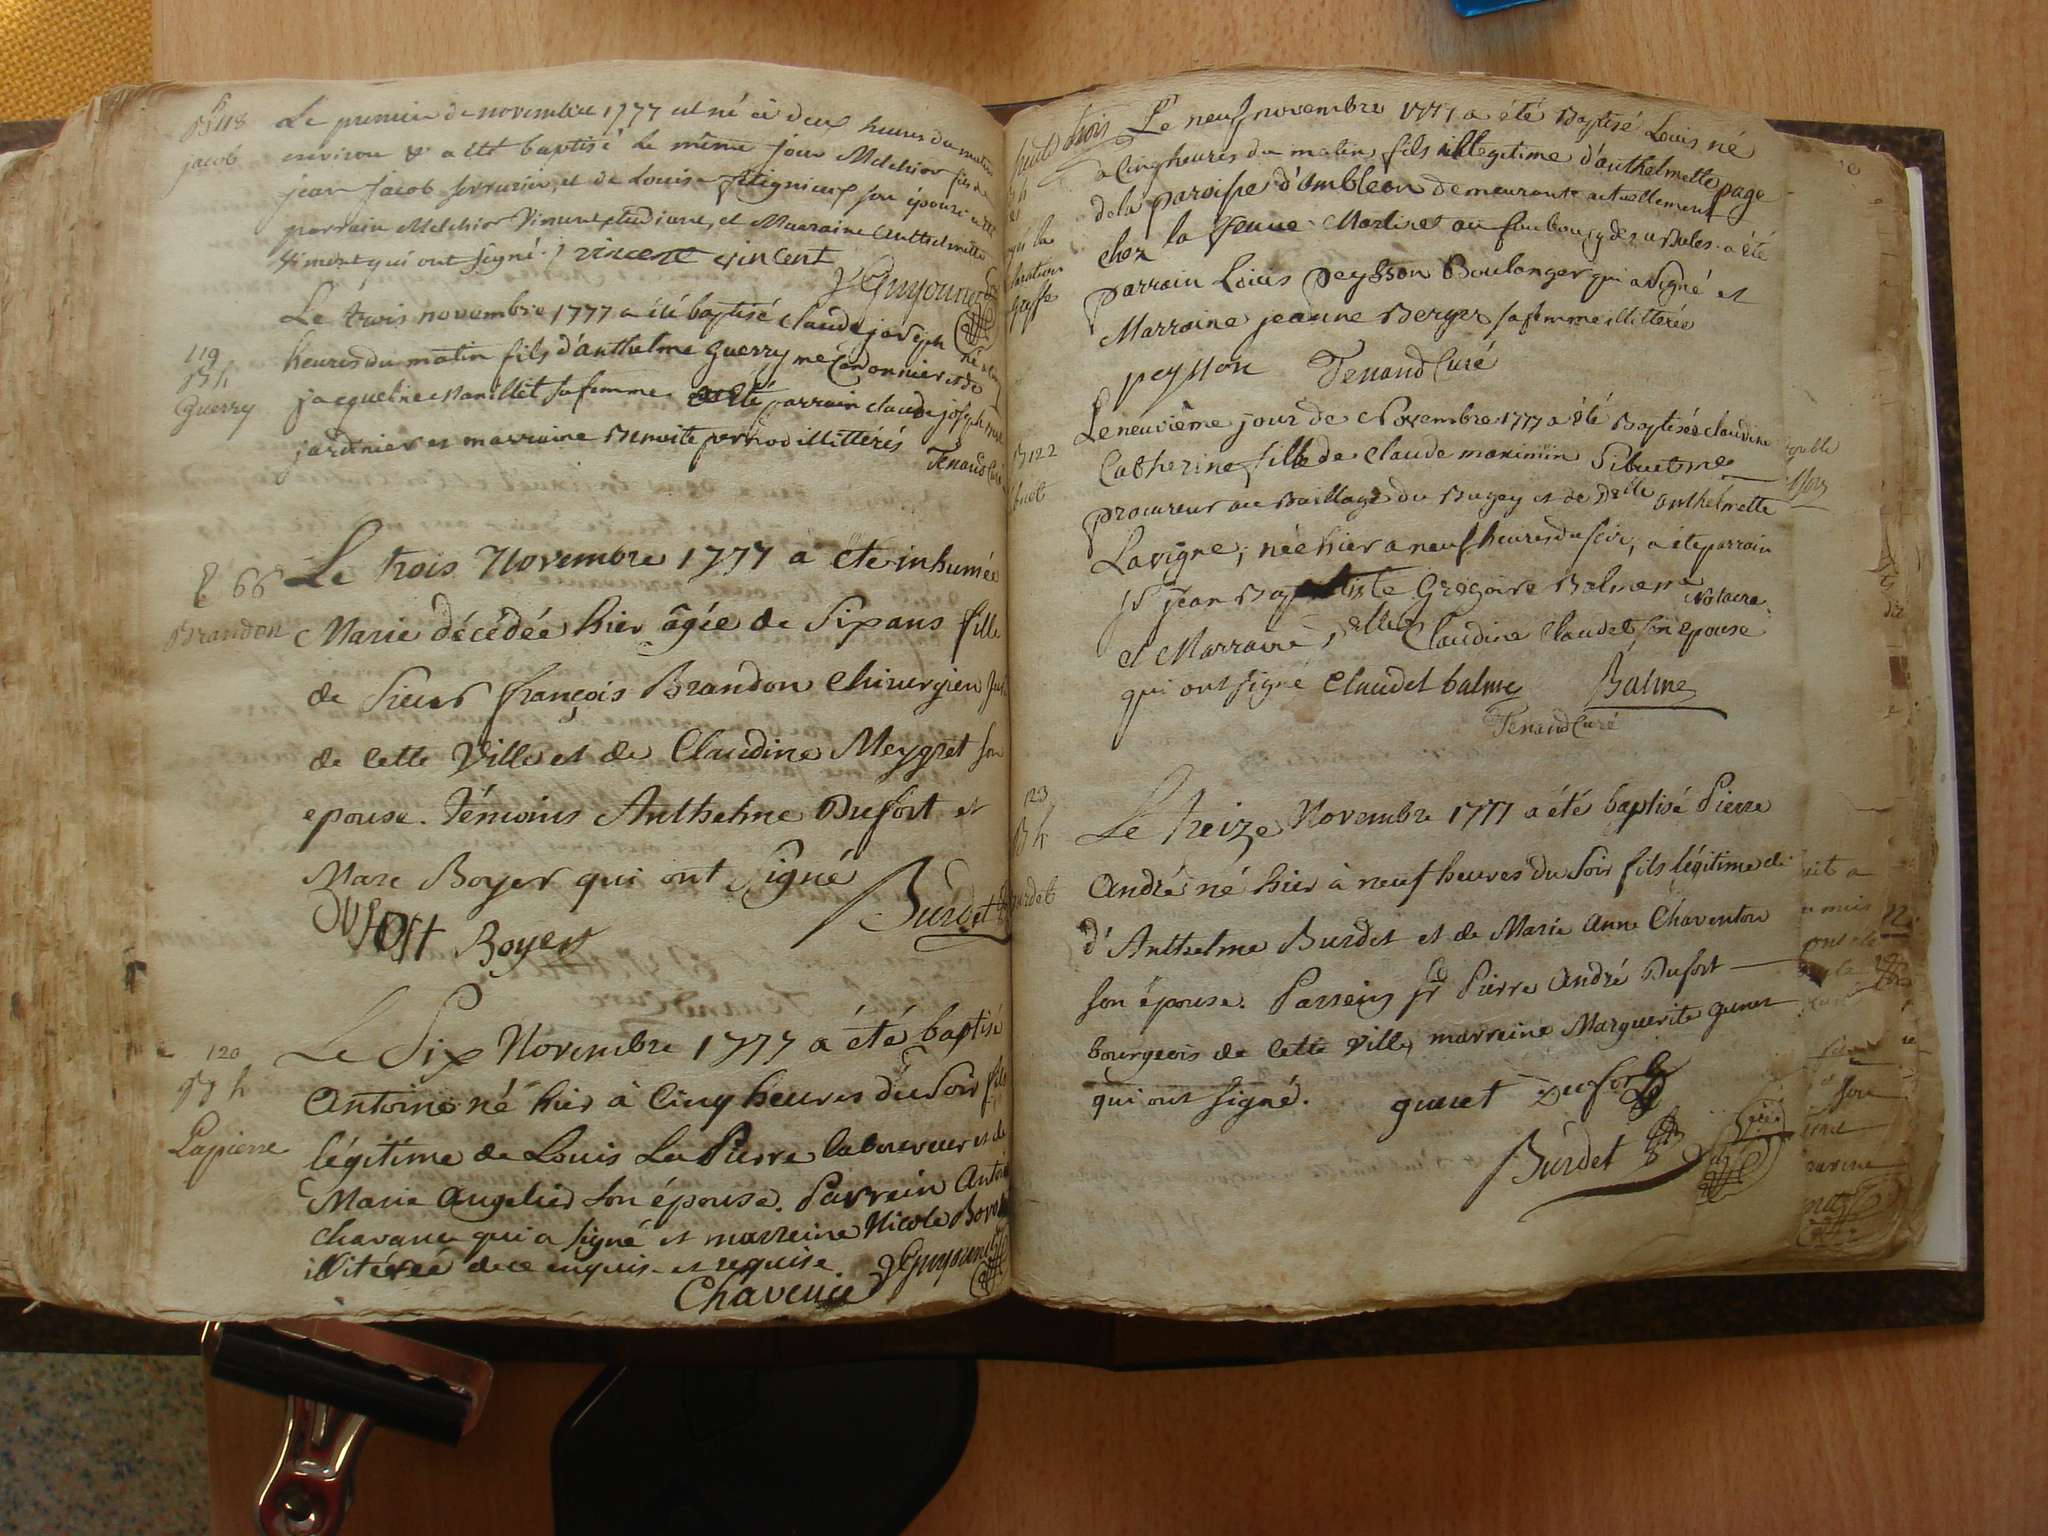 B 118
jacob
Le premier de novembre 1777 est né à deux heures du matin
environ & a été baptisé le même jour Melchior fils de
jean jacob serrurier, et de Louise son épouse
parrain Melchior Vincent étudiant, et Marraine Anthelmette
Vincent qui ont signé. vincent vincent
Guyonnet
119
B h
Guerry
Le trois novembre 1777 a été baptisé claude joseph né
heures du matin fils d'anthelme Guerry me Cordonnier et de
jacqueline Manillet sa femme. a été parrain claude joseph
jardinier et marraine Benoite illittérés
Tenand Curé
S 66
Brandon
Le trois Novembre 1777 a été inhumée
Marie décédée hier âgée de Six ans fille
de Sieur françois Brandon Chirurgien
de cette Ville et de Claudine Meygret son
epouse. témoins Anthelme Dufort et
Marc Boyer qui ont Signé
Dufort Boyer Burdet
120
B h
Lapierre
Le Six Novembre 1777 a été baptisé
Antoine né hier à Cinq heures du Soir fils
légitime de Louis La Pierre laboureur et de
Marie Angelier son épouse. Parrein Antoine
chavanu qui a signé et marreine Nicole
illitérée de ce enquis et requise
Guyonnet
trois
Le neuf novembre 1777 a été Baptisé Louis né
a Cinq heures du matin, fils illegitime d'anthelmette page
de la paroisse d'ambleon demeurante actuellement
chez la Veuve Martinet au faubourg des a été
parrain Louis peysson Boulanger qui a Signé et
Marraine jeanne Berger sa femme illitérée
peysson Tenand Curé
B 122
Le neuvième jour de Novembre 1777 a été Baptisée claudine
Catherine fille de Claude maximin Sibuet me
procureur au Baillage du Bugey et de Dlle anthelmette
Lavigne, née hier a neuf heures du soir, a été parrain
Sr jean Baptiste Gregoire Balme me Notaire
et Marraine, Claudine Claudet son epouse
qui ont signé Claudet balme Balme
Tenand Curé
123
B h
Burdet
Le treize Novembre 1777 a été baptisé Pierre
André né hier à neuf heures du Soir fils légitime de
d'Anthelme Burdet et de Marie Anne Chaventon
son épouse. Parrein sr Pierre André Dufort
bourgeois de cette Ville, marreine Marguerite gunet
qui ont signé. gunet Dufort
Burdet